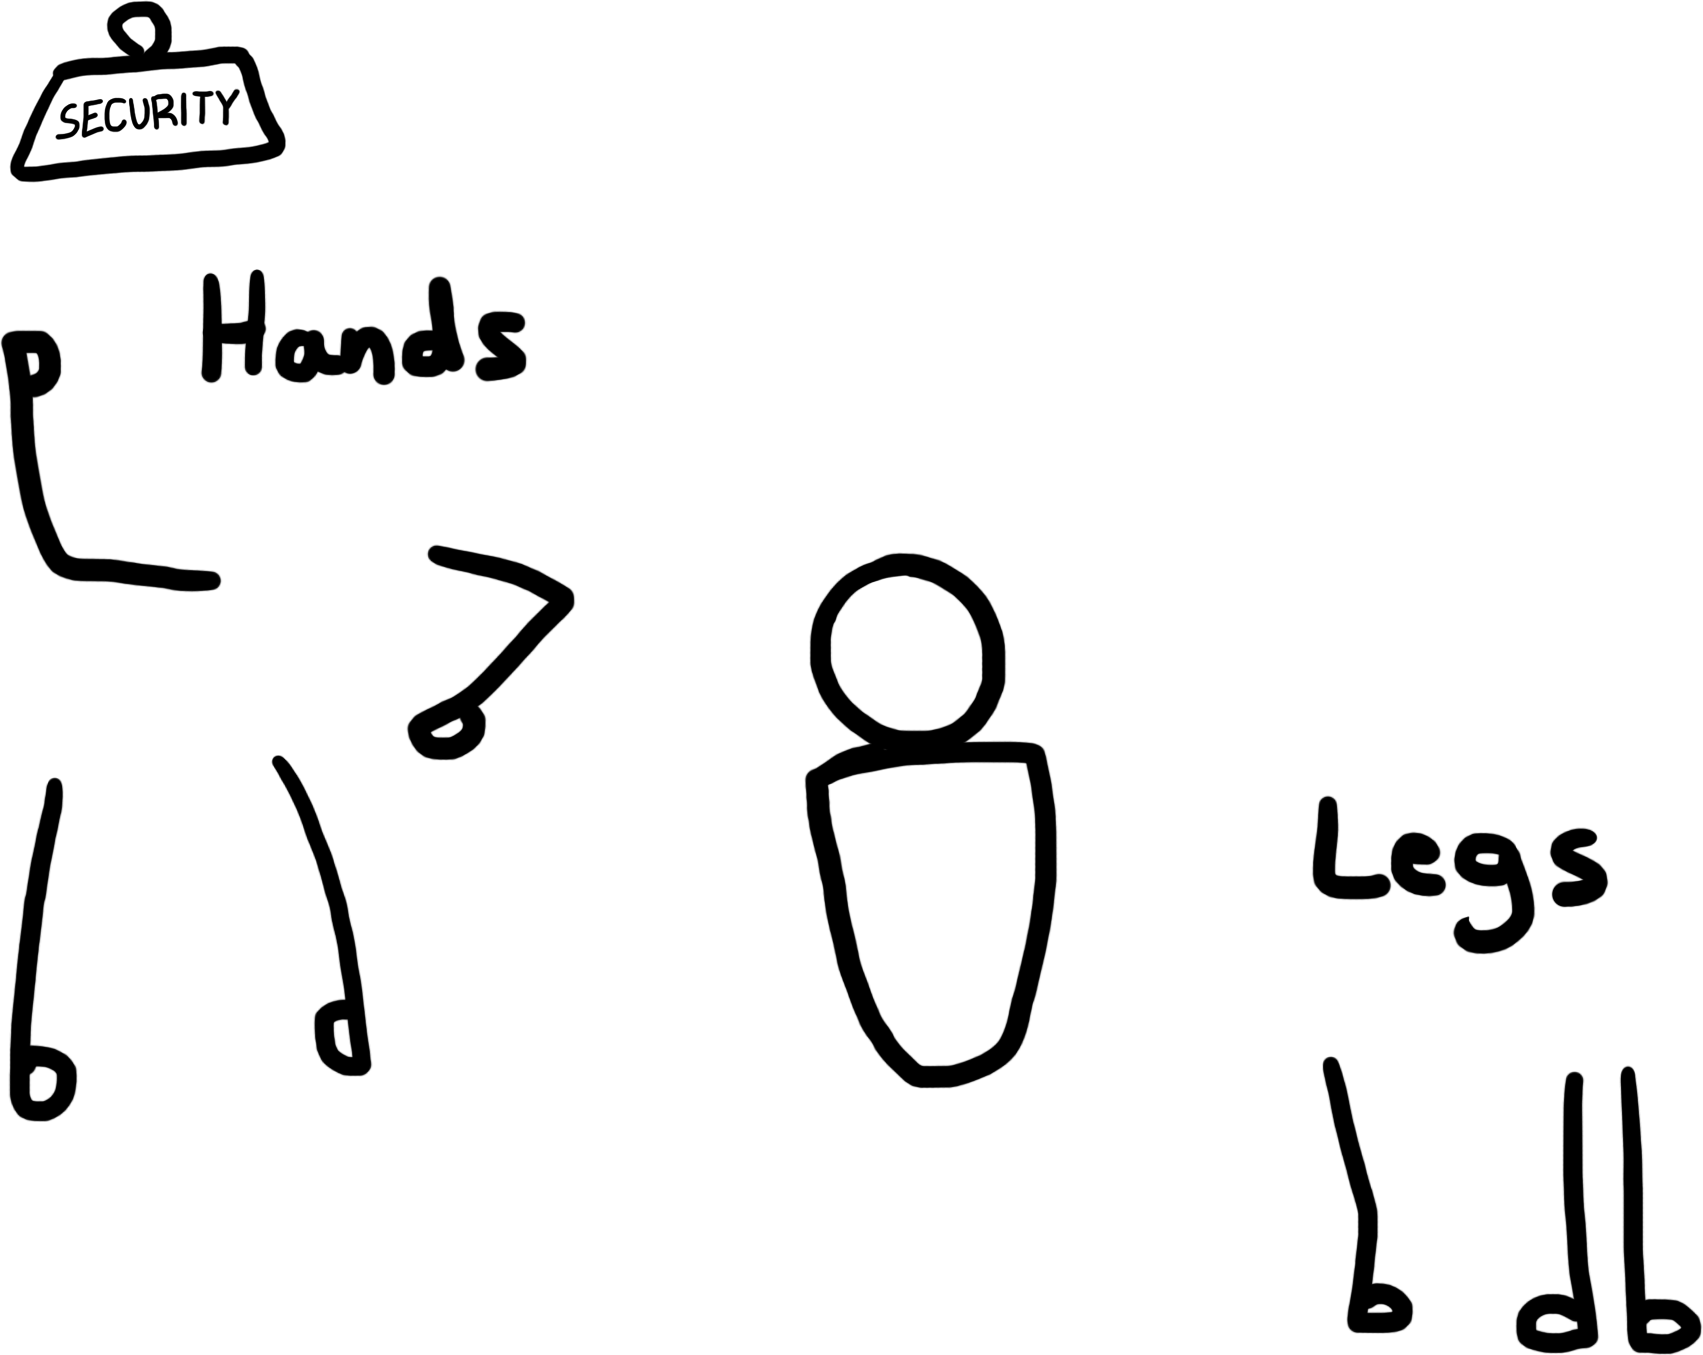 SECURITY
Hands
Legs